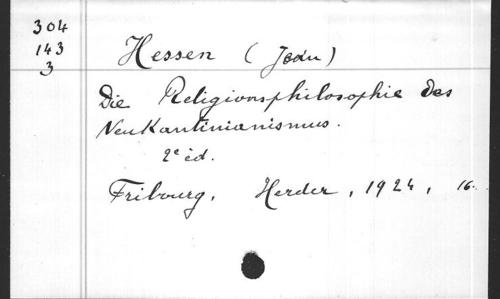 304
143
3
Hessen (Jean)
Die Religionsphilosophie des
Neukantinianismus.
2e éd.
Fribourg, Herder, 1924, 16.